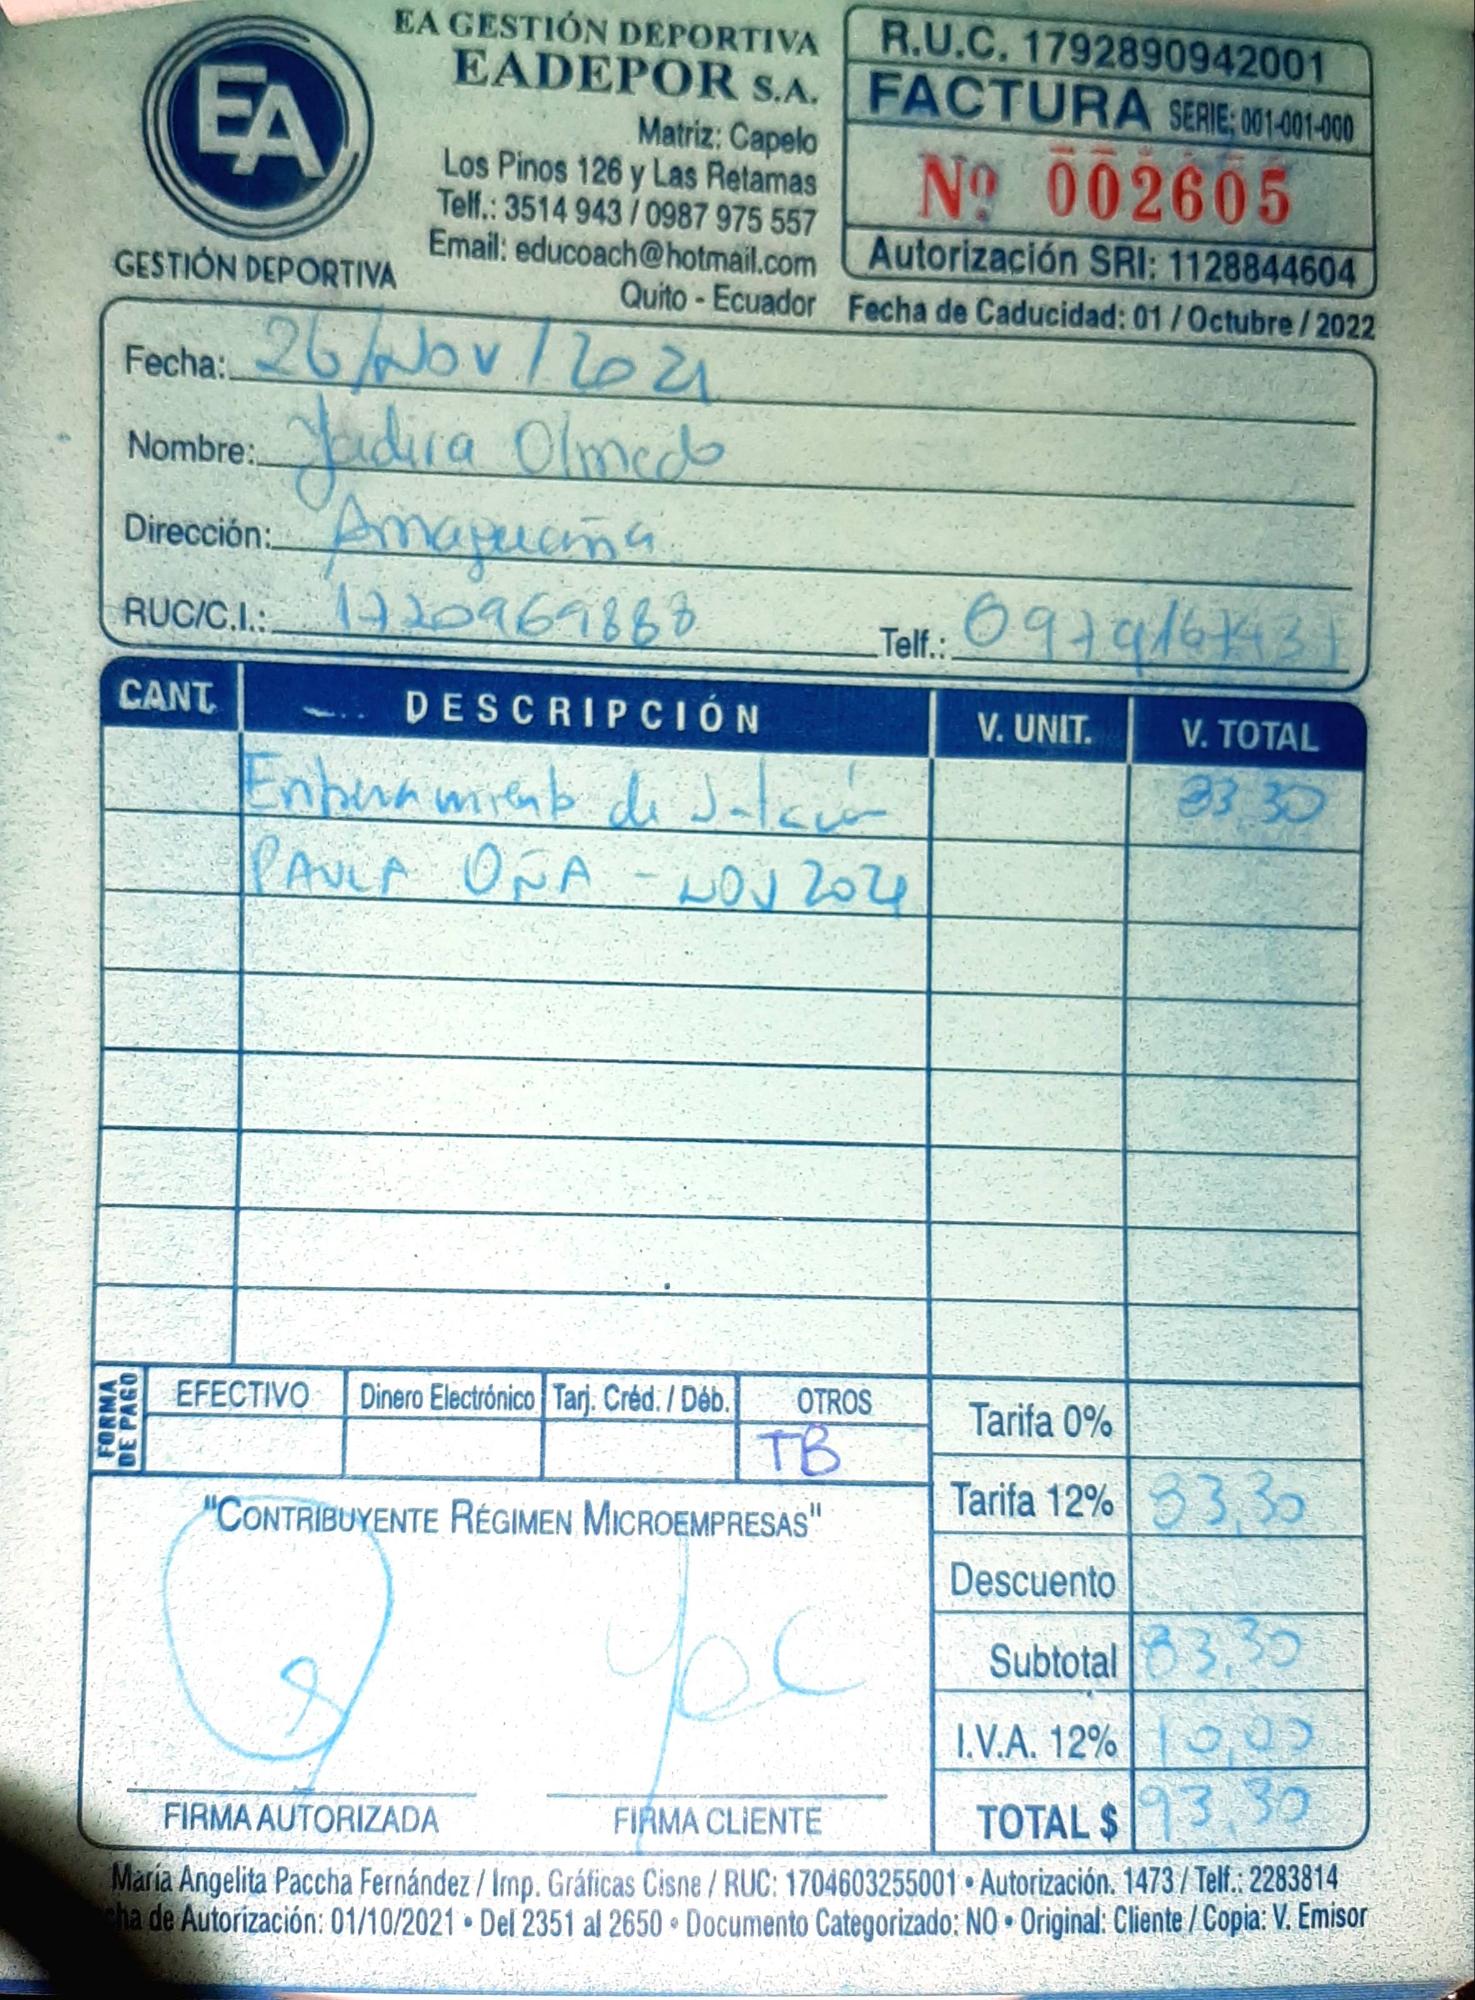 EA
GESTIÓN DEPORTIVA
EA GESTIÓN DEPORTIVA
EADEPOR S.A.
Matriz: Capelo
Los Pinos 126 y Las Retamas
Telf.: 3514 943 / 0987 975 557
Email: educoach@hotmail.com
Quito - Ecuador
R.U.C. 1792890942001
FACTURA SERIE: 001-001-000
Nº 002605
Autorización SRI: 1128844604
Fecha de Caducidad: 01 / Octubre / 2022
Fecha: 26/Nov/2021
Nombre: Yadira Olmedo
Dirección: Amaguaña
RUC/C.I.: 1720969888 Telf.: 0979167431
CANT. DESCRIPCIÓN V. UNIT. V. TOTAL
Entrenamiento de 83,30
PAULA OÑA - NOV 2021
FORMA DE PAGO
EFECTIVO Dinero Electrónico Tarj. Créd. / Déb. OTROS
TB
Tarifa 0%
Tarifa 12% 83,30
Descuento
Subtotal 83,30
I.V.A. 12% 10,00
TOTAL $ 93,30
"CONTRIBUYENTE RÉGIMEN MICROEMPRESAS"
FIRMA AUTORIZADA FIRMA CLIENTE
María Angelita Paccha Fernández / Imp. Gráficas Cisne / RUC: 1704603255001 • Autorización. 1473 / Telf.: 2283814
cha de Autorización: 01/10/2021 • Del 2351 al 2650 • Documento Categorizado: NO • Original: Cliente / Copia: V. Emisor